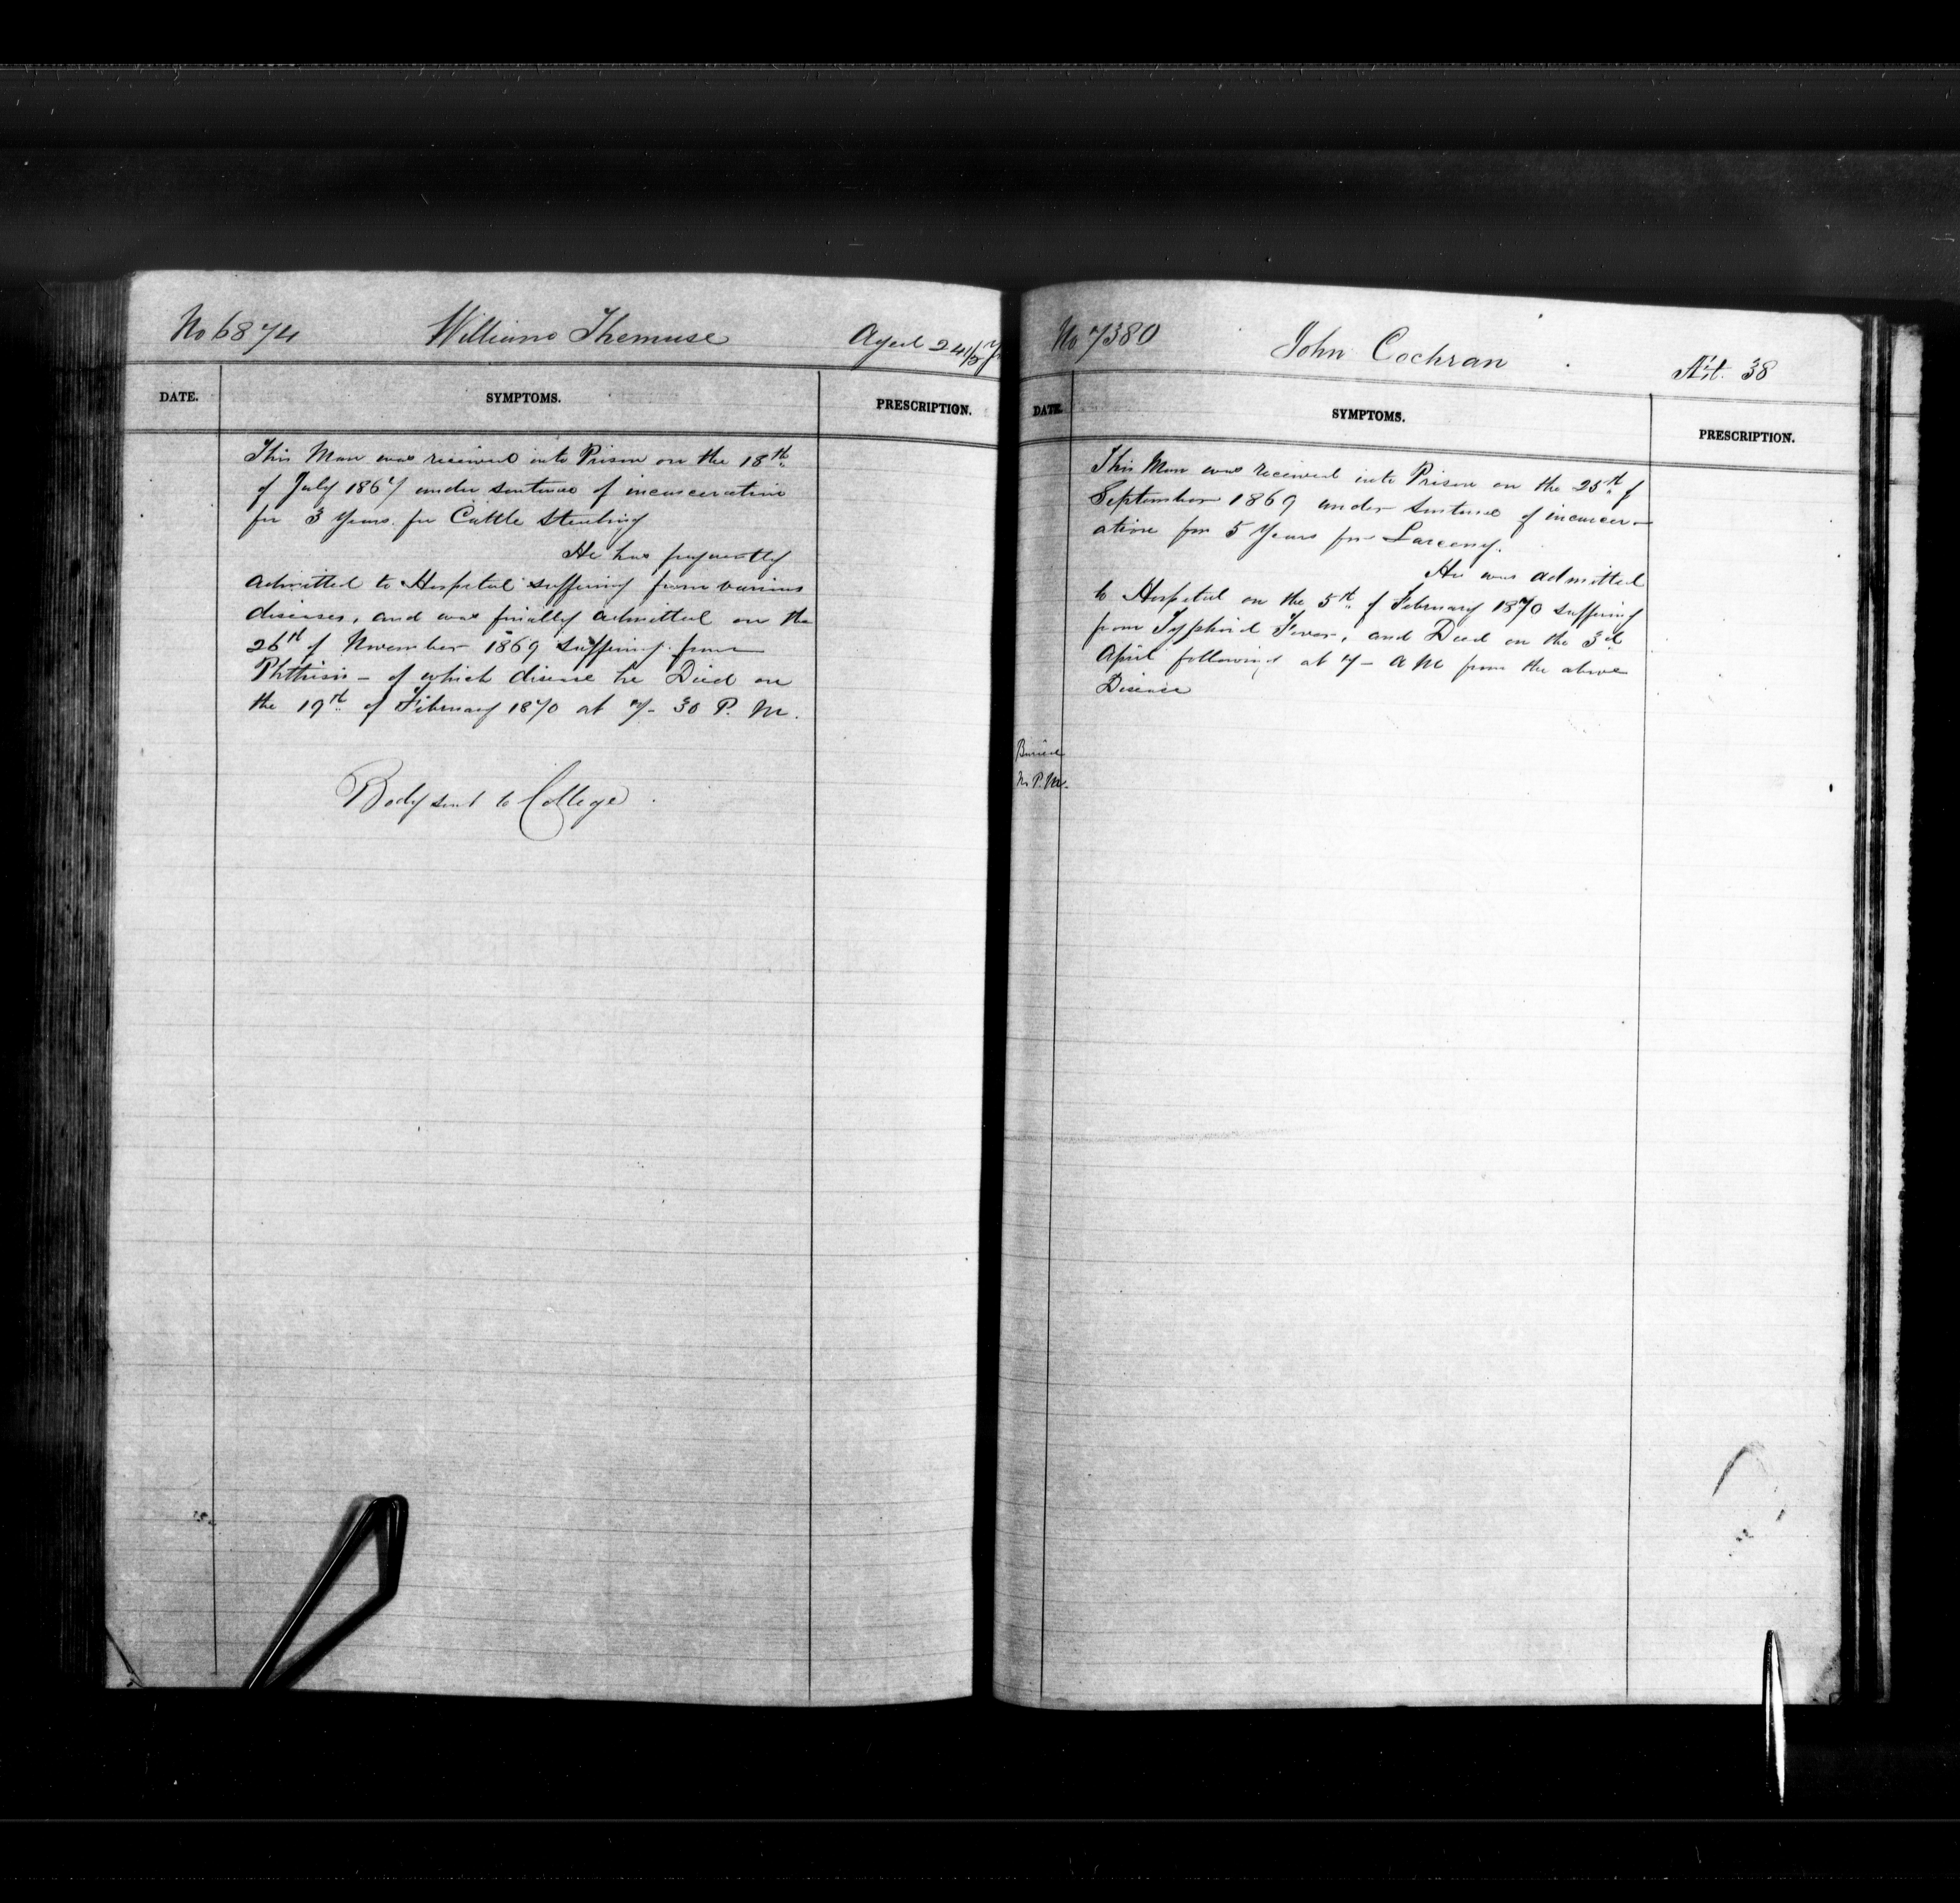 No 6874 William Themuse Aged 24 1/2
DATE. SYMPTOMS. PRESCRIPTION.
This Man was received into Prison on the 18th
of July 1867 under sentence of incarceration
for 3 Years for Cattle Stealing
He has frequently
admitted to Hospital suffering from various
diseases, and was finially admitted on the
26th of November 1869 suffering from
Phthisis - of which disease he Died on
the 19th of February 1870 at 7- 30 P. M.
Body sent to College
No 7380 John Cochran Æt. 38
DATE. SYMPTOMS. PRESCRIPTION.
This Man was received into Prison on the 25th of
September 1869 under Sentence of incarcer-
ation for 5 Years for Larceny.
He was admitted
to Hospital on the 5th of February 1870 suffering
from Typhoid Fever, and Died on the 3d
April following at 7- AM from the above
Disease
Buried
No P.M.